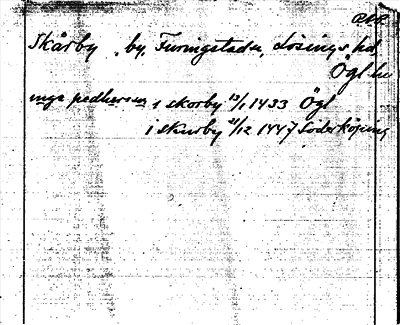 Skårby by, Furingstads, Lösings hd,
Ögl
inge pedhersen i skorby 13/1 1433 Ögl
i skurby 21/12 1447 Söderköping